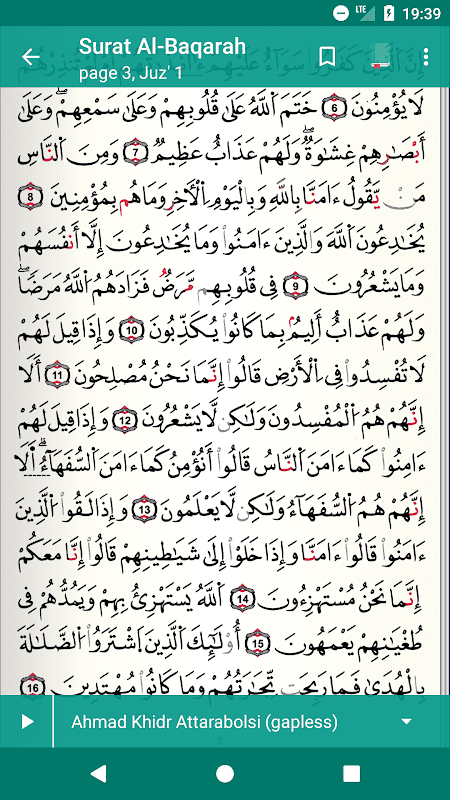 19:39
LTE
Surat Al-Baqarah
page 3, Juz' 1
إِنَّ ٱلَّذِينَ كَفَرُوا۟ سَوَآءٌ عَلَيْهِمْ ءَأَنذَرْتَهُمْ أَمْ لَمْ تُنذِرْهُمْ
لَا يُؤْمِنُونَ 6 خَتَمَ ٱللَّهُ عَلَىٰ قُلُوبِهِمْ وَعَلَىٰ سَمْعِهِمْ ۖ وَعَلَىٰٓ
أَبْصَـٰرِهِمْ غِشَـٰوَةٌ ۖ وَلَهُمْ عَذَابٌ عَظِيمٌ 7 وَمِنَ ٱلنَّاسِ
مَن يَقُولُ ءَامَنَّا بِٱللَّهِ وَبِٱلْيَوْمِ ٱلْـَٔاخِرِ وَمَا هُم بِمُؤْمِنِينَ 8
يُخَـٰدِعُونَ ٱللَّهَ وَٱلَّذِينَ ءَامَنُوا۟ وَمَا يُخَـٰدِعُونَ إِلَّآ أَنفُسَهُمْ
وَمَا يَشْعُرُونَ 9 فِى قُلُوبِهِم مَّرَضٌ فَزَادَهُمُ ٱللَّهُ مَرَضًا ۖ
وَلَهُمْ عَذَابٌ أَلِيمٌۢ بِمَا كَانُوا۟ يُكَذِّبُونَ 10 وَإِذَا قِيلَ لَهُمْ
لَا تُفْسِدُوا۟ فِى ٱلْأَرْضِ قَالُوٓا۟ إِنَّمَا نَحْنُ مُصْلِحُونَ 11 أَلَآ
إِنَّهُمْ هُمُ ٱلْمُفْسِدُونَ وَلَـٰكِن لَّا يَشْعُرُونَ 12 وَإِذَا قِيلَ لَهُمْ
ءَامِنُوا۟ كَمَآ ءَامَنَ ٱلنَّاسُ قَالُوٓا۟ أَنُؤْمِنُ كَمَآ ءَامَنَ ٱلسُّفَهَآءُ ۗ أَلَآ
إِنَّهُمْ هُمُ ٱلسُّفَهَآءُ وَلَـٰكِن لَّا يَعْلَمُونَ 13 وَإِذَا لَقُوا۟ ٱلَّذِينَ
ءَامَنُوا۟ قَالُوٓا۟ ءَامَنَّا وَإِذَا خَلَوْا۟ إِلَىٰ شَيَـٰطِينِهِمْ قَالُوٓا۟ إِنَّا مَعَكُمْ
إِنَّمَا نَحْنُ مُسْتَهْزِءُونَ 14 ٱللَّهُ يَسْتَهْزِئُ بِهِمْ وَيَمُدُّهُمْ فِى
طُغْيَـٰنِهِمْ يَعْمَهُونَ 15 أُو۟لَـٰٓئِكَ ٱلَّذِينَ ٱشْتَرَوُا۟ ٱلضَّلَـٰلَةَ
بِٱلْهُدَىٰ فَمَا رَبِحَت تِّجَـٰرَتُهُمْ وَمَا كَانُوا۟ مُهْتَدِينَ 16
Ahmad Khidr Attarabolsi (gapless)